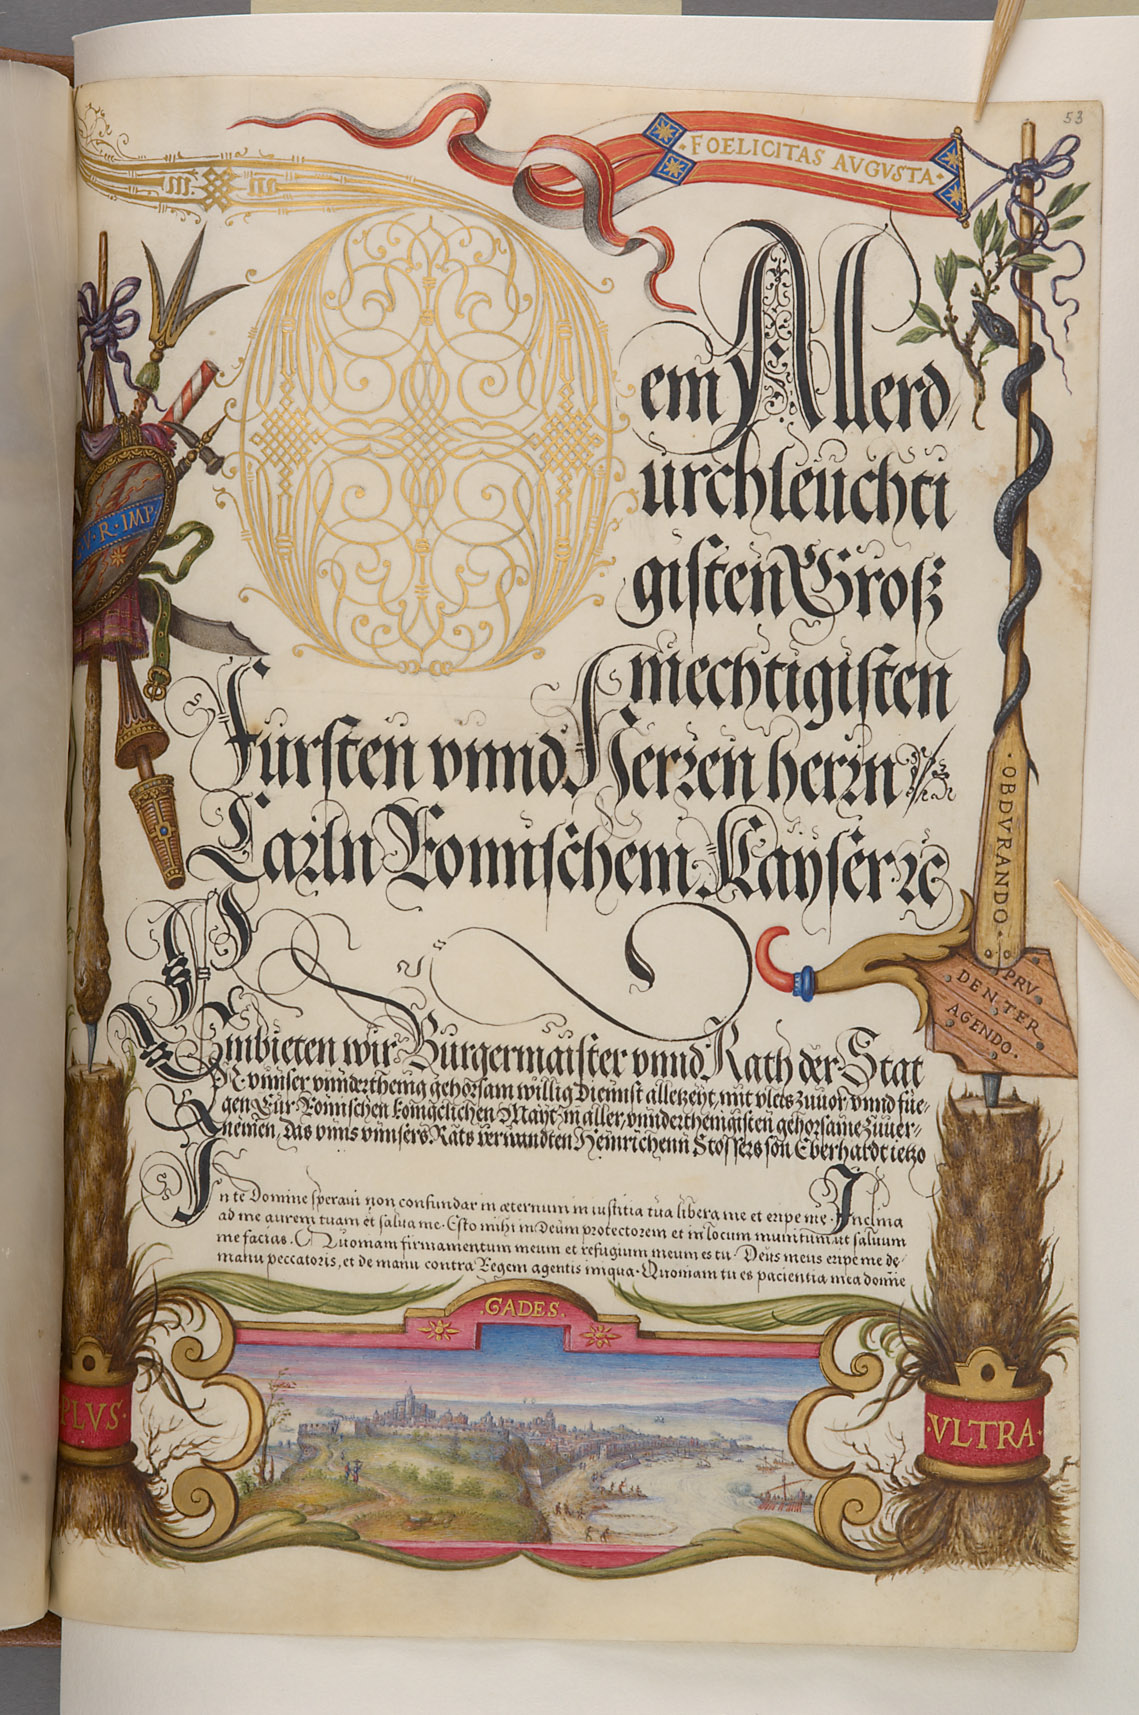 53
FOELICITAS AVGVSTA
em Allerd
urchleuchti
gisten Groß
mechtigisten
V · R · IMP.
Fursten vnnd Herren herrn
Carln Romischem Kayser ꝛc
· OBDVRANDO ·
PRV
DENTER
AGENDO ·
Embieten wir Burgermaister vnnd Rath der Stat
N. vnnser vnnderthenig gehorsam willig Diennst alletzeyt, mit vleis zuuor vnnd fue-
gen Eur Romischen konigclichen Mayt in aller vnnderthenigisten gehorsame zuuer-
nemen, Das vnns vnnsers Rats verwandten Heinrichenn Stossers son Eberhardt ietzo
In te Domine speraui non confundar in æternum in iustitia tua libera me et eripe me. Inclina
ad me aurem tuam et salua me. Esto mihi in Deum protectorem et in locum munitum ut saluum
me facias. Quoniam firmamentum meum et refugium meum es tu. Deus meus eripe me de
manu peccatoris, et de manu contra legem agentis iniqua. Quoniam tu es pacientia mea domine
· GADES ·
PLVS ·
· VLTRA ·